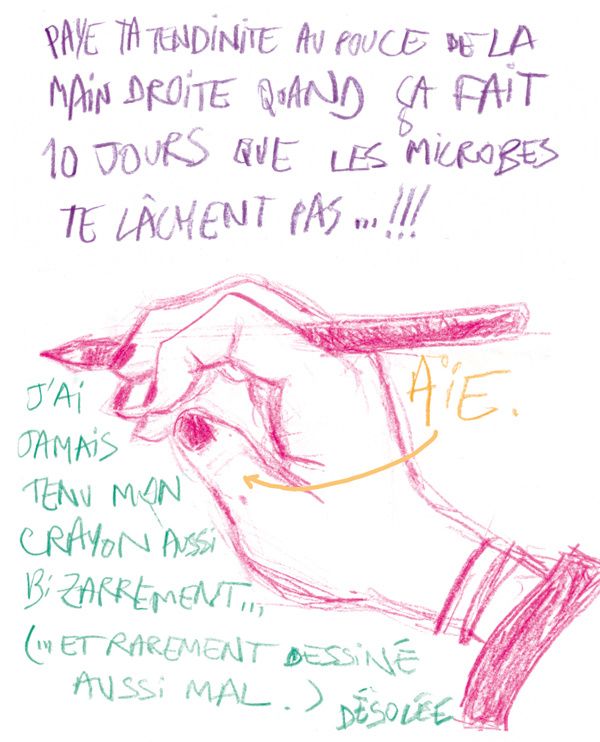 PAYE TA TENDINITE AU POUCE DE LA
MAIN DROITE QUAND ÇA FAIT
10 JOURS QUE LES MICROBES
TE LÂCHENT PAS...!!!
AÏE.
J'AI
JAMAIS
TENU MON
CRAYON AUSSI
BIZARREMENT...
(... ET RAREMENT DESSINÉ
AUSSI MAL.)
DÉSOLÉE